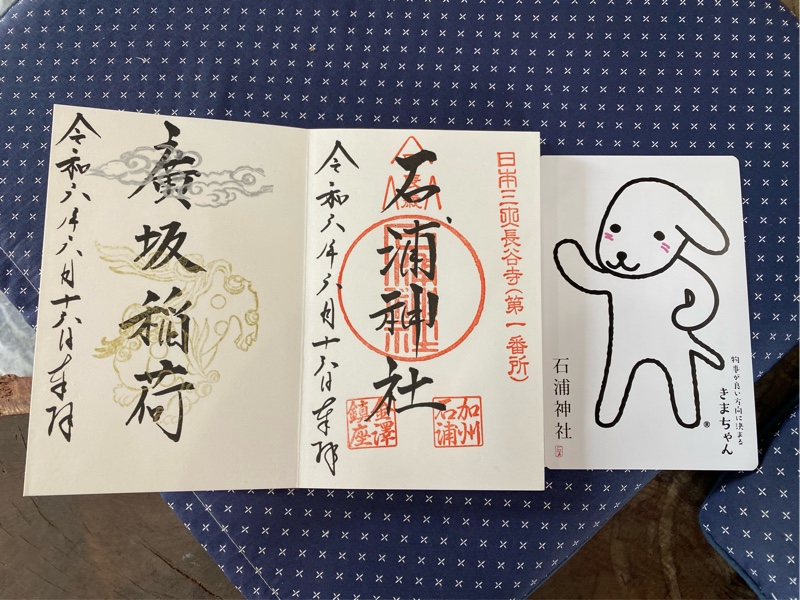 廣坂稲荷
令和六年六月十六日奉拝
長谷寺(第一番所)
石浦神社
加州
石浦
金澤
鎮座
令和六年六月十六日奉拝
物事が良い方向に決まる
きまちゃん®
石浦神社